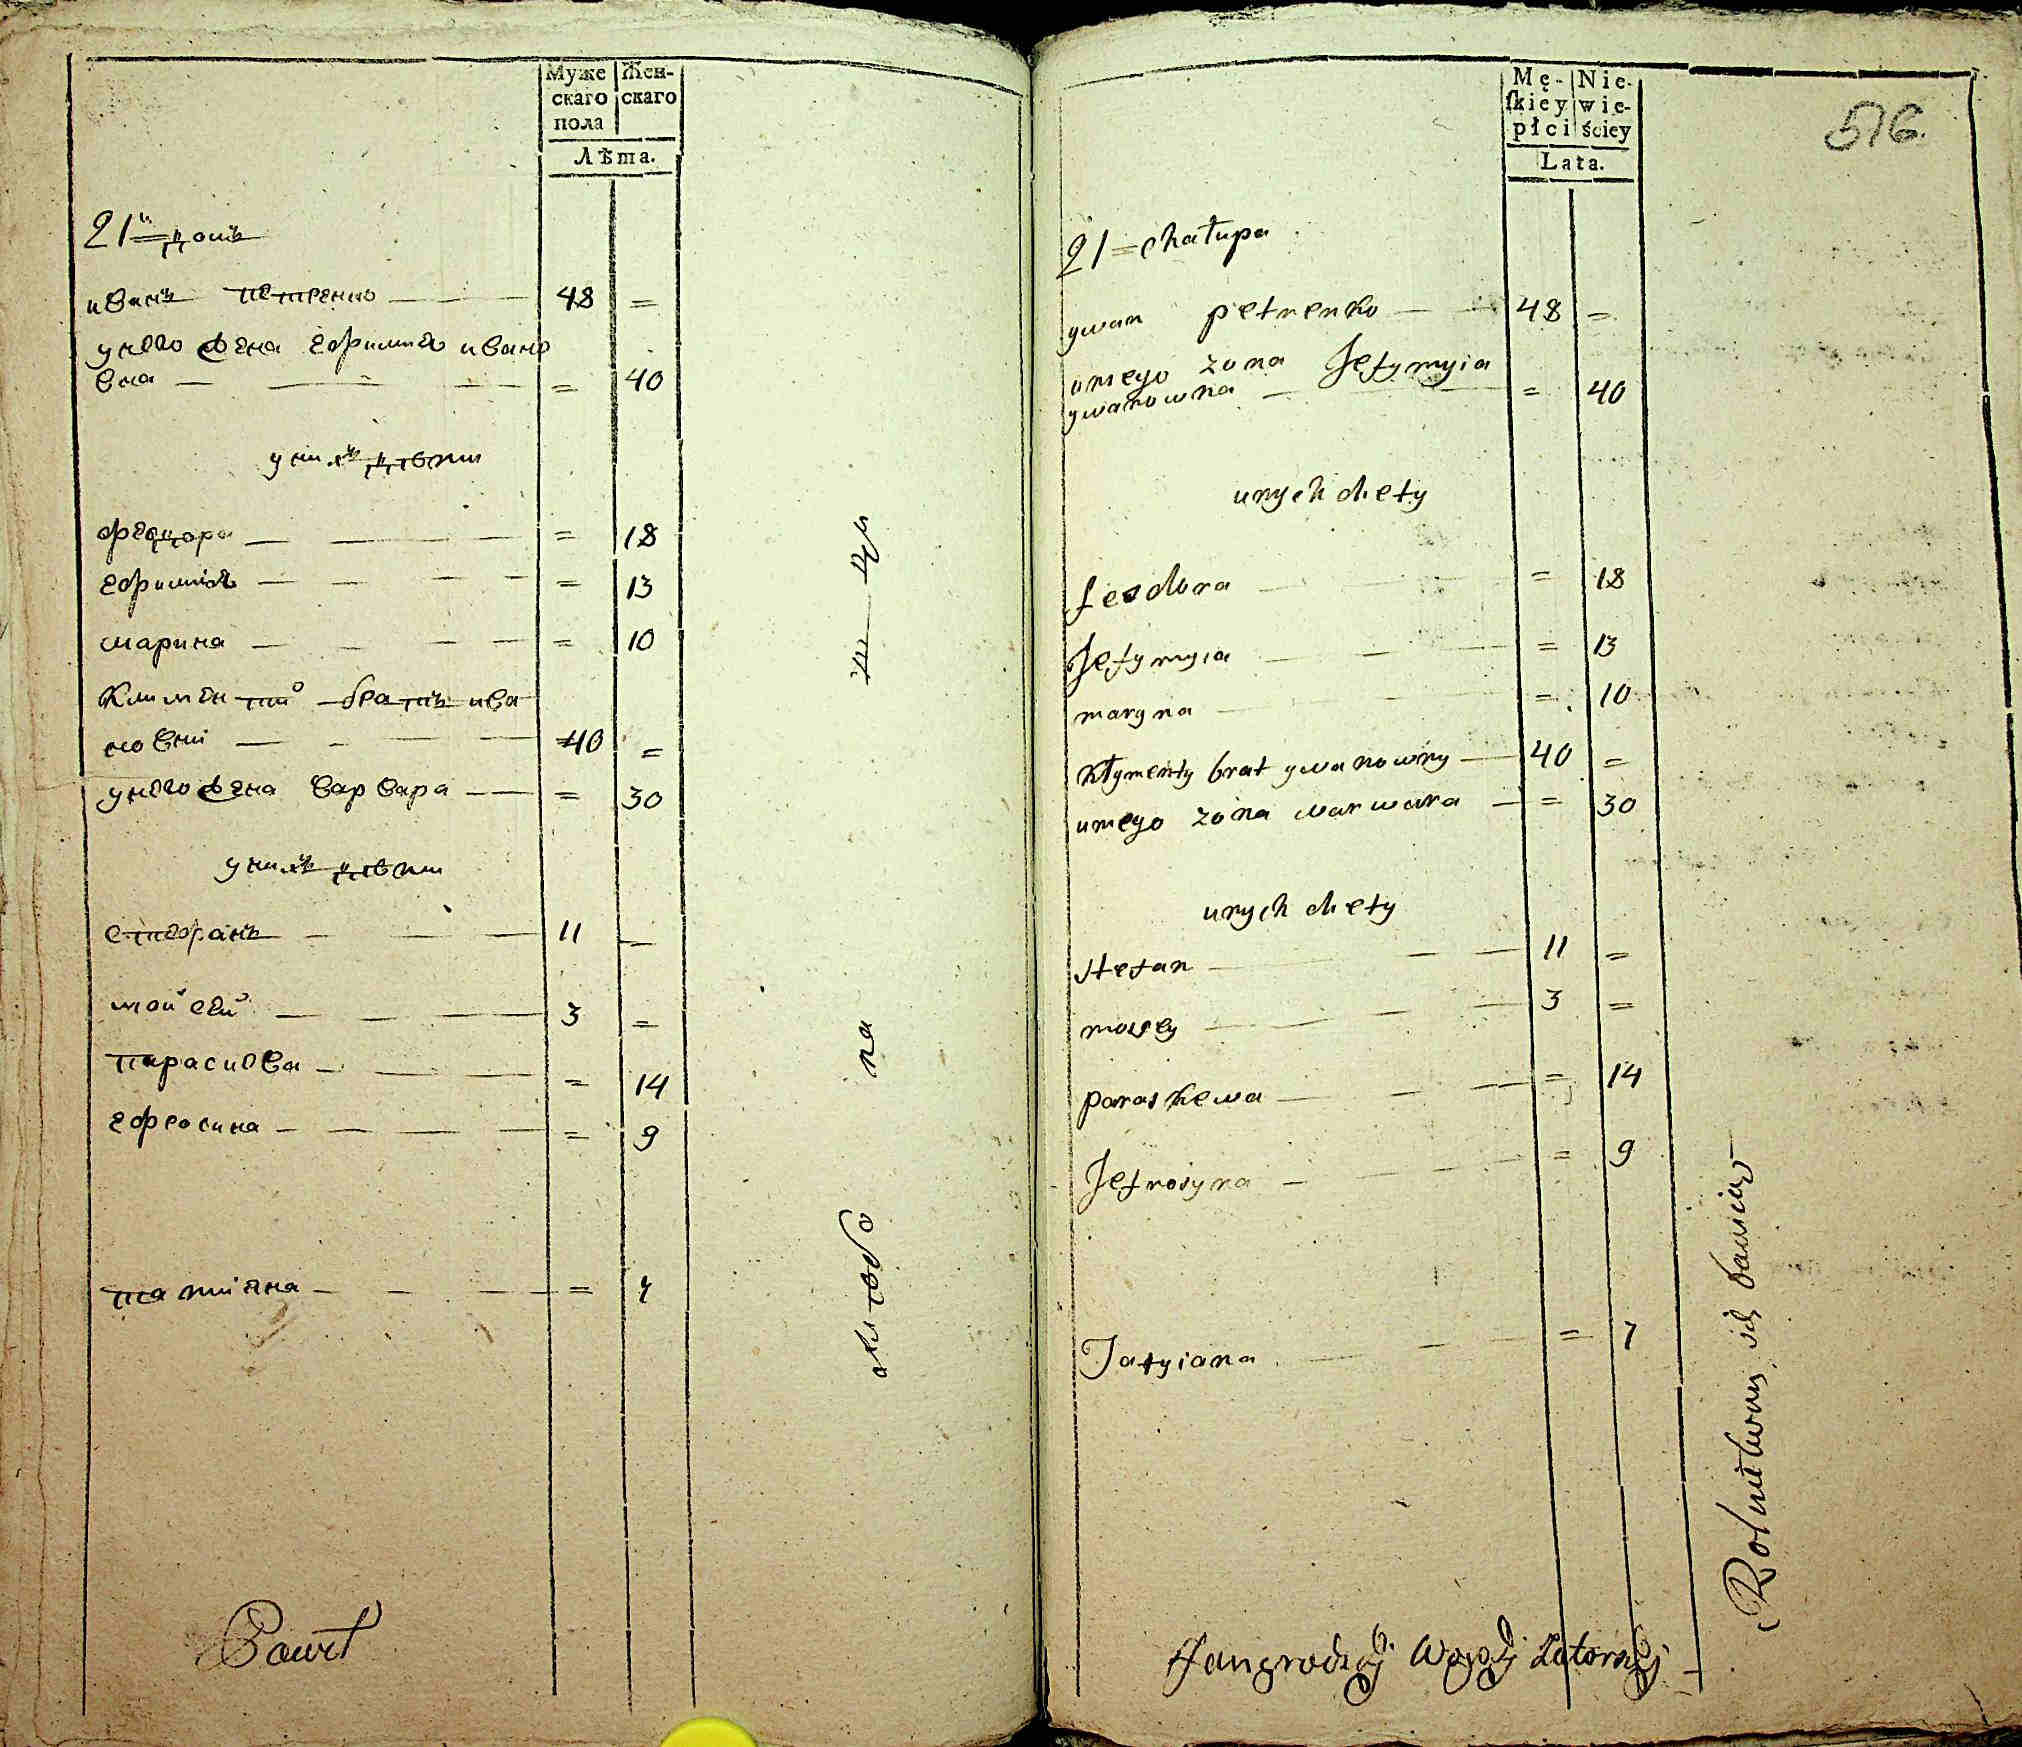 Муже Жен-
скаго скаго
пола
Лѣта.
21й домъ
иванъ петренко 48 =
унего жена ефимия ивано
вна = 40
унихъ дѣти
феодора = 18
ефимия = 13
марина = 10
климентий братъ ива
новни 40 =
унего жена варвара = 30
унихъ дѣти
стефанъ 11 =
мойсей 3 =
параскева = 14
ефросина = 9
татияна = 7
на
Powit
Mę- Nie-
ſkiey wie-
płci ściey
Lata.
516.
21 = chałupa
ywan petrenko 48 =
unego zona Jefymyia
ywanowna = 40
unych diety
feodora = 18
Jefymyia = 13
maryna = 10
kłymenty brat ywanowny 40 =
unego zona warwara = 30
unych diety
stefan 11 =
mosey 3 =
paraskewa = 14
Jefrosyna = 9
Tatyiana = 7
Rolnictwem się bawiący